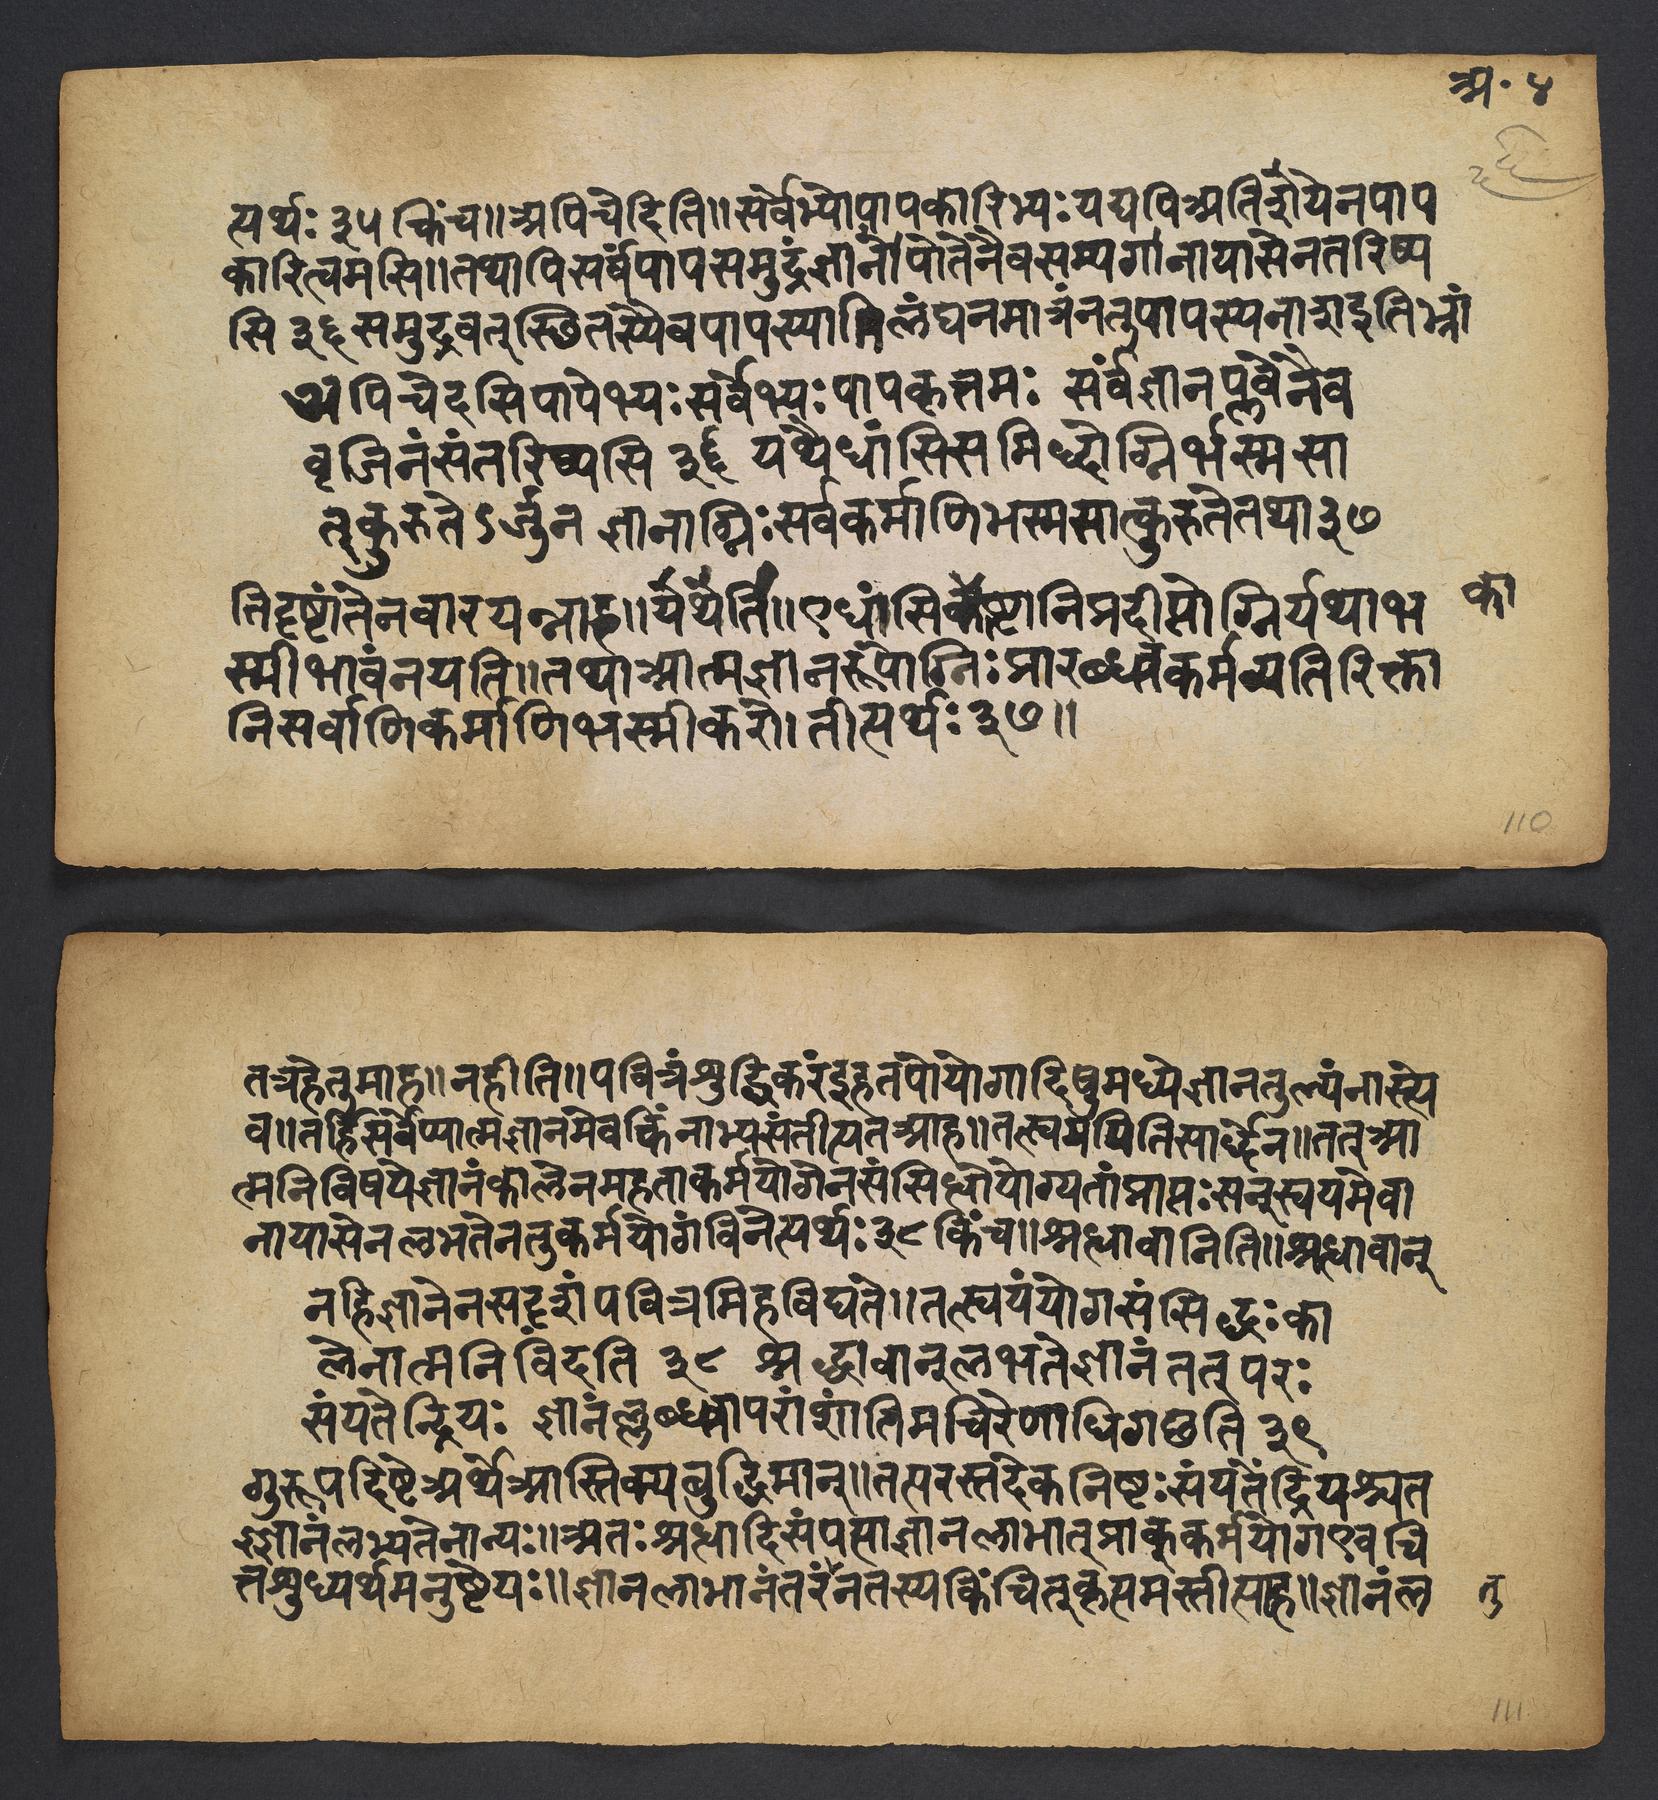 अ॰ ४
त्यर्थः ३५ किंच॥अपिचेदिति॥सर्वेभ्योपापकारिभ्यः यद्यपिअतिशयेनपाप
कारित्वमसि॥तथापिसर्वंपापसमुद्रंज्ञानोपोतेनैवसम्यगानायासेनतरिष्य
सि ३६ समुद्रवत्स्थितस्यैवपापस्यातिलंघनमात्रंनतुपापस्यनाशइतिभ्रां
अपिचेदसिपापेभ्यः सर्वेभ्यः पापकृत्तमः सर्वंज्ञानप्लवेनैव
वृजिनंसंतरिष्यसि ३६ यथैधांसिसमिध्दोग्निर्भस्मसा
त्कुरुतेऽर्जुन ज्ञानाग्निः सर्वकर्माणिभस्मसात्कुरुतेतथा ३७
तिदृष्टांतेनवारयन्नाह॥यथेति॥एधांसिकाष्टानिप्रदीप्तोग्निर्यथाभ
का
स्मीभावंनयति॥तथाआत्मज्ञानरूपोग्निः प्रारब्धकर्मव्यतिरिक्ता
निसर्वाणिकर्माणिभस्मीकरो।तीत्यर्थः ३७॥
110
तत्रहेतुमाह॥नहीति॥पवित्रंशुद्धिकरंइहतपोयोगादिषुमध्येज्ञानतुल्यंनास्त्ये
व॥तर्हिसर्वेप्यात्मज्ञानमेवकिंनाभ्यसंतीत्यतआह॥तत्स्वयमितिसार्द्धेन॥तत्आ
त्मनिविषयेज्ञानंकालेनमहताकर्मयोगेनसंसिध्धोयोग्यतांप्राप्तः सन्स्वयमेवा
नायासेनलभतेनतुकर्मयोगंविनेत्यर्थः ३८ किंच॥श्रध्धावानिति॥श्रध्धावान्
नहिज्ञानेनसदृशंपवित्रमिहविद्यते॥तत्स्वयंयोगसंसिद्धः का
लेनात्मनिविंदति ३८ श्रद्धावान्लभतेज्ञानंतत्परः
संयतेन्द्रियः ज्ञानंलब्ध्वापरांशांतिमचिरेणाधिगछति ३९
गुरूपदिष्टेअर्थेआस्तिक्यबुद्धिमान्॥तत्परस्तदेकनिष्टः संयतेंद्रियश्चत
ज्ज्ञानंलभ्यतेनान्यः॥अतः श्रध्धादिसंपत्त्याज्ञानलाभात्प्राक्कर्मयोगएवचि
त्तशुध्यर्थमनुष्टेयः॥ज्ञानलाभानंतरंनतस्यकिंचित्कृत्यमस्तीत्याह॥ज्ञानंल
तु
111